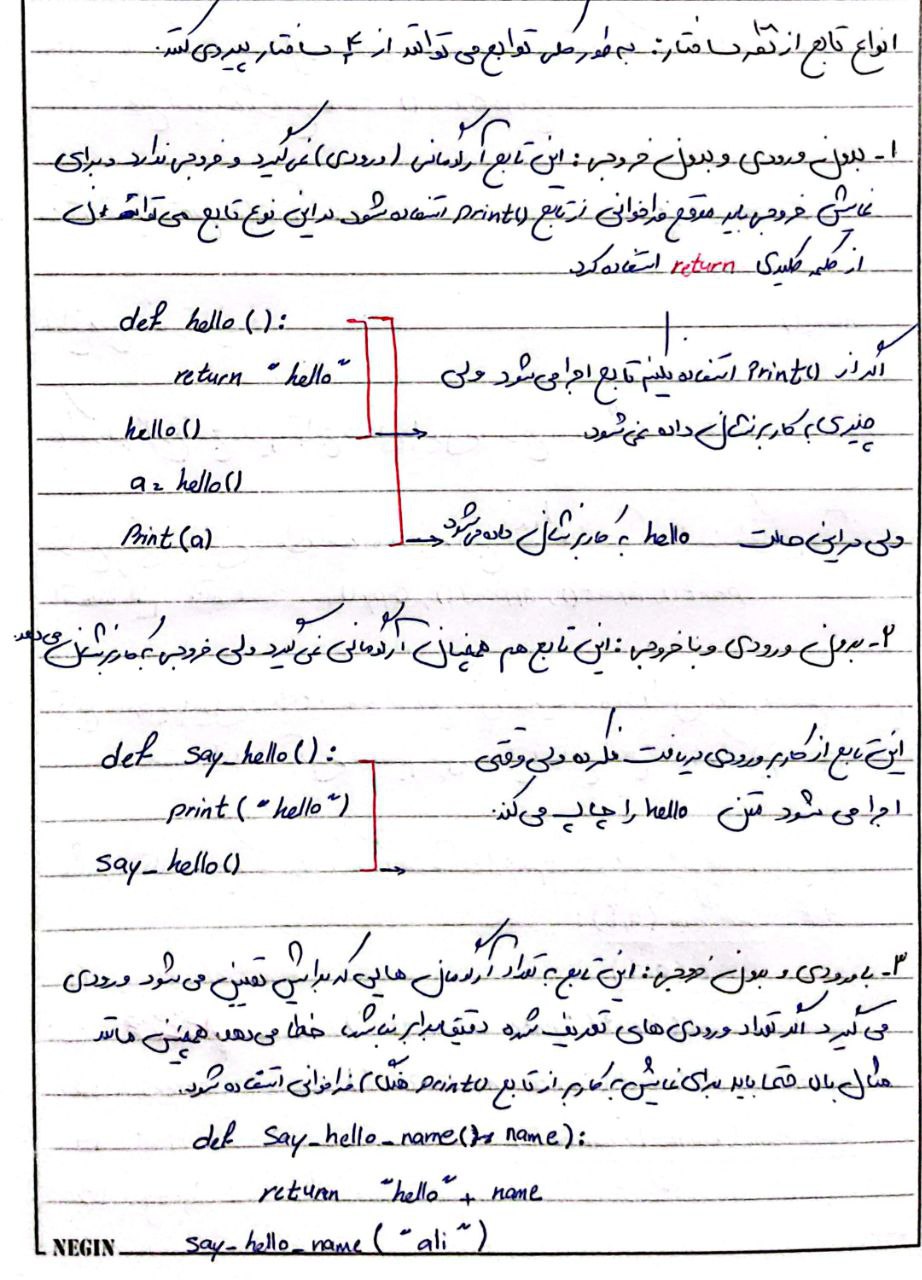 انواع تابع از نظر ساختار: به طور کلی توابع می توانند از ۴ ساختار پیروی کنند.
۱- بدون ورودی و بدون خروجی: این تابع آرگومانی (ورودی) نمی گیرد و خروجی ندارد و برای
نمایش خروجی باید موقع فراخوانی از تابع print() استفاده شود. در این نوع تابع می توان
از کلمه کلیدی return استفاده کرد
def hello():
return "hello"
hello()
a = hello()
Print(a)
اگر از print() استفاده نکنیم تابع اجرا می شود ولی
چیزی به کاربر نشان داده نمی شود
ولی در این حالت hello به کاربر نشان داده می شود
۲- بدون ورودی و با خروجی: این تابع هم همچنان آرگومانی نمی گیرد ولی خروجی به کاربر نشان می دهد.
def say_hello():
print("hello")
say_hello()
این تابع از کاربر ورودی دریافت نکرده ولی وقتی
اجرا می شود متن hello را چاپ می کند.
۳- با ورودی و بدون خروجی: این تابع به تعداد آرگومان هایی که برایش تعیین می شود ورودی
می گیرد و اگر تعداد ورودی های تعریف شده دقیقا برابر نباشد خطا می دهد همچنین مانند
مثال بالا حتما باید برای نمایش به کاربر از تابع print() هنگام فراخوانی استفاده شود.
def say_hello_name(name):
return "hello" + name
say_hello_name("ali")
NEGIN